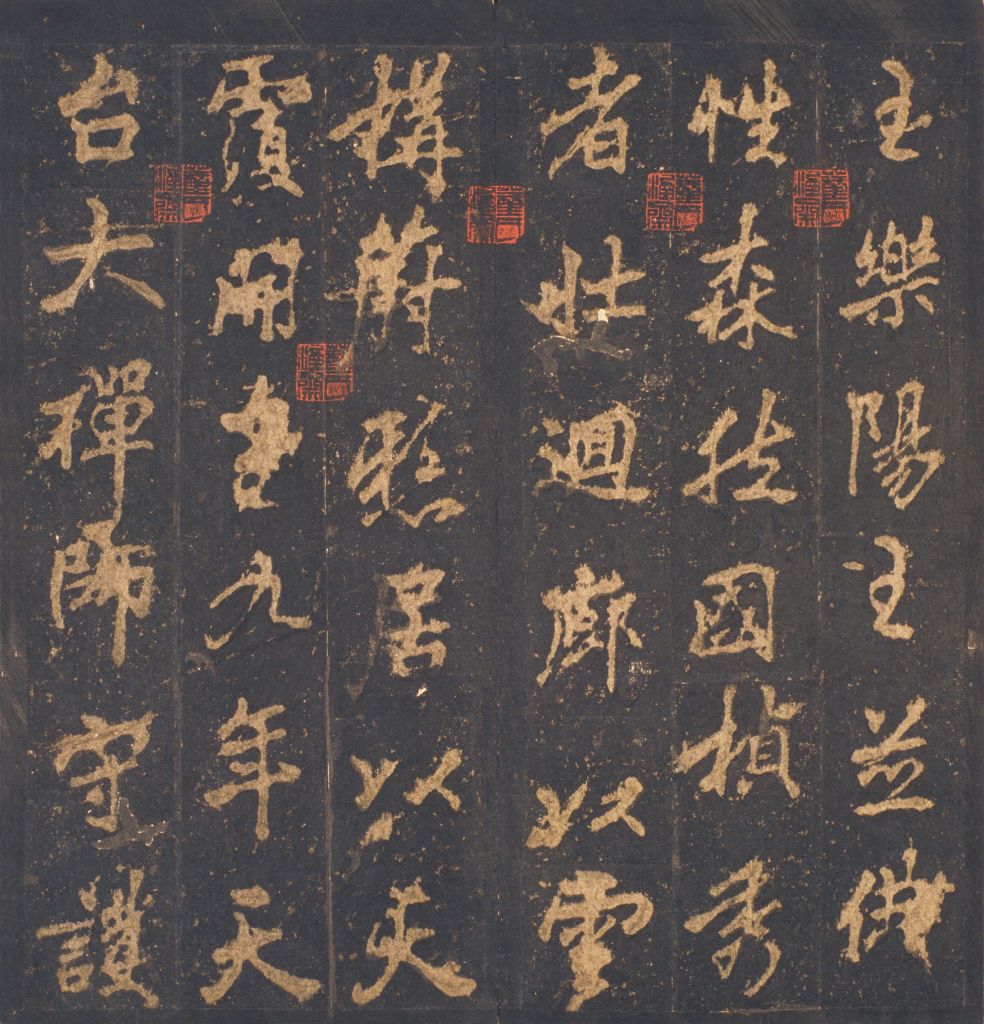 王樂陽王並佛
性森挺國楨秀
者壯迴廊以雲
構蔚懸居以
開皇九年天
台大禪師守護